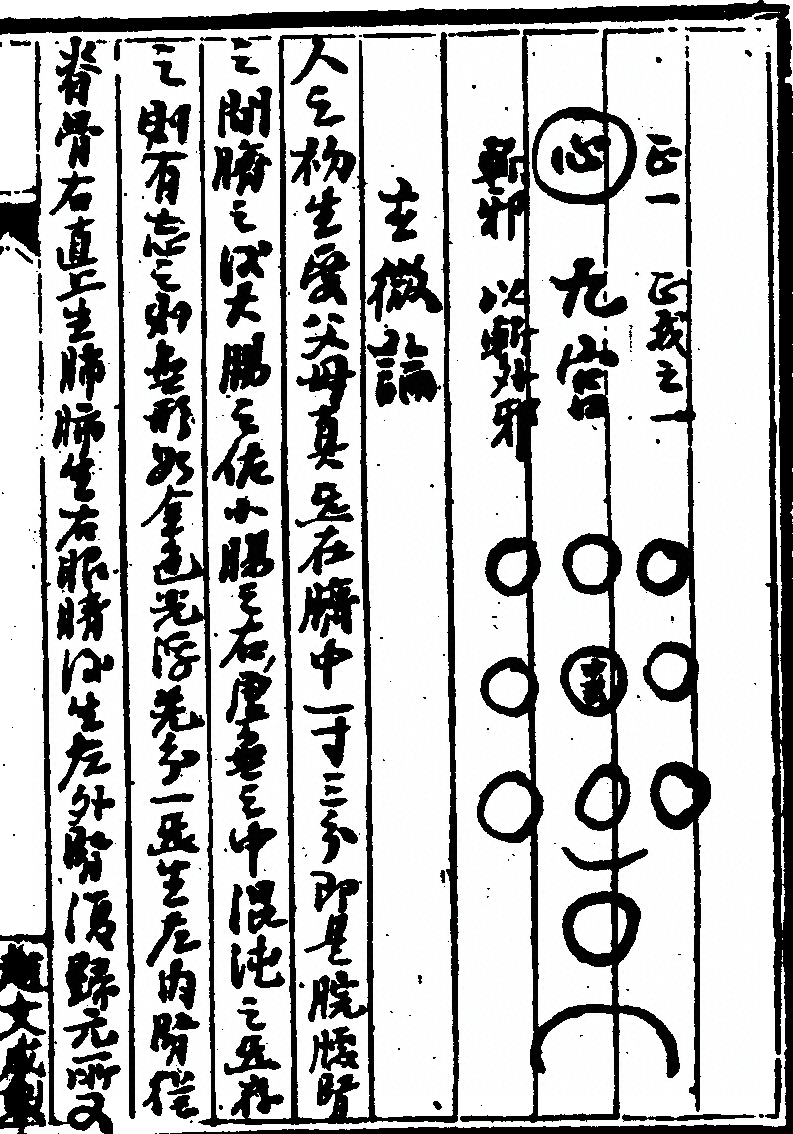 正一 正我之一
心 九宮
斬邪 以斬外邪
玄微論
人之初生受父母真炁在臍中一寸三分即是脘腰腎
之間臍之後大腸之左小腸之右虛無之中混沌之炁存
之則有忘之則無形如金色光浮光分一炁生左內腎從
脊骨右直上生肺肺生右眼睛後生左外腎復歸元所又
趙文咸